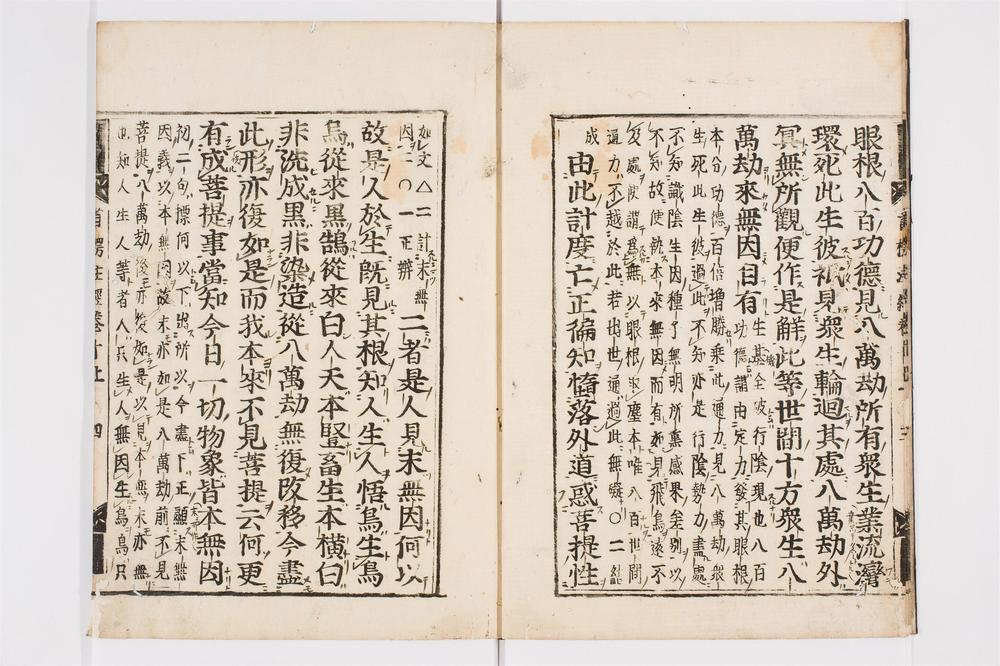 眼根八百功德見八萬劫所有衆生業流灣
環死此生彼祇見衆生輪迴其處八萬劫外
冥無所觀便作是解此等世間十方衆生八
萬劫來無因自有
生基全破行陰現也八百
功德謂由定力發其眼根
本分功德百倍增勝乘此通力見八萬劫衆
生死此生彼過此不知亦是行陰勢力盡處
不知識陰生因種了無明所熏感果差別以
不知故便執本來無因而有如見飛鳥遠不
及處便謂爲無以眼根取塵本唯八百世間
通力不越於此若出世通過此無礙○二結
成
由此計度亡正徧知墮落外道惑菩提性
如文△二計末無
因二○一正辨
二者是人見末無因何以
故是人於生旣見其根知人生人悟鳥生鳥
烏從來黑鵠從來白人天本豎畜生本橫白
非洗成黑非染造從八萬劫無復改移今盡
此形亦復如是而我本來不見菩提云何更
有成菩提事當知今日一切物象皆本無因
初二句標何以下出所以今盡下正顯末無
因義以本無因故末亦如是八萬劫前不見
菩提八萬劫後亦復如是以見本無末亦無
也知人生人等者人只生人無因生鳥鳥只
首楞 經卷十上 四